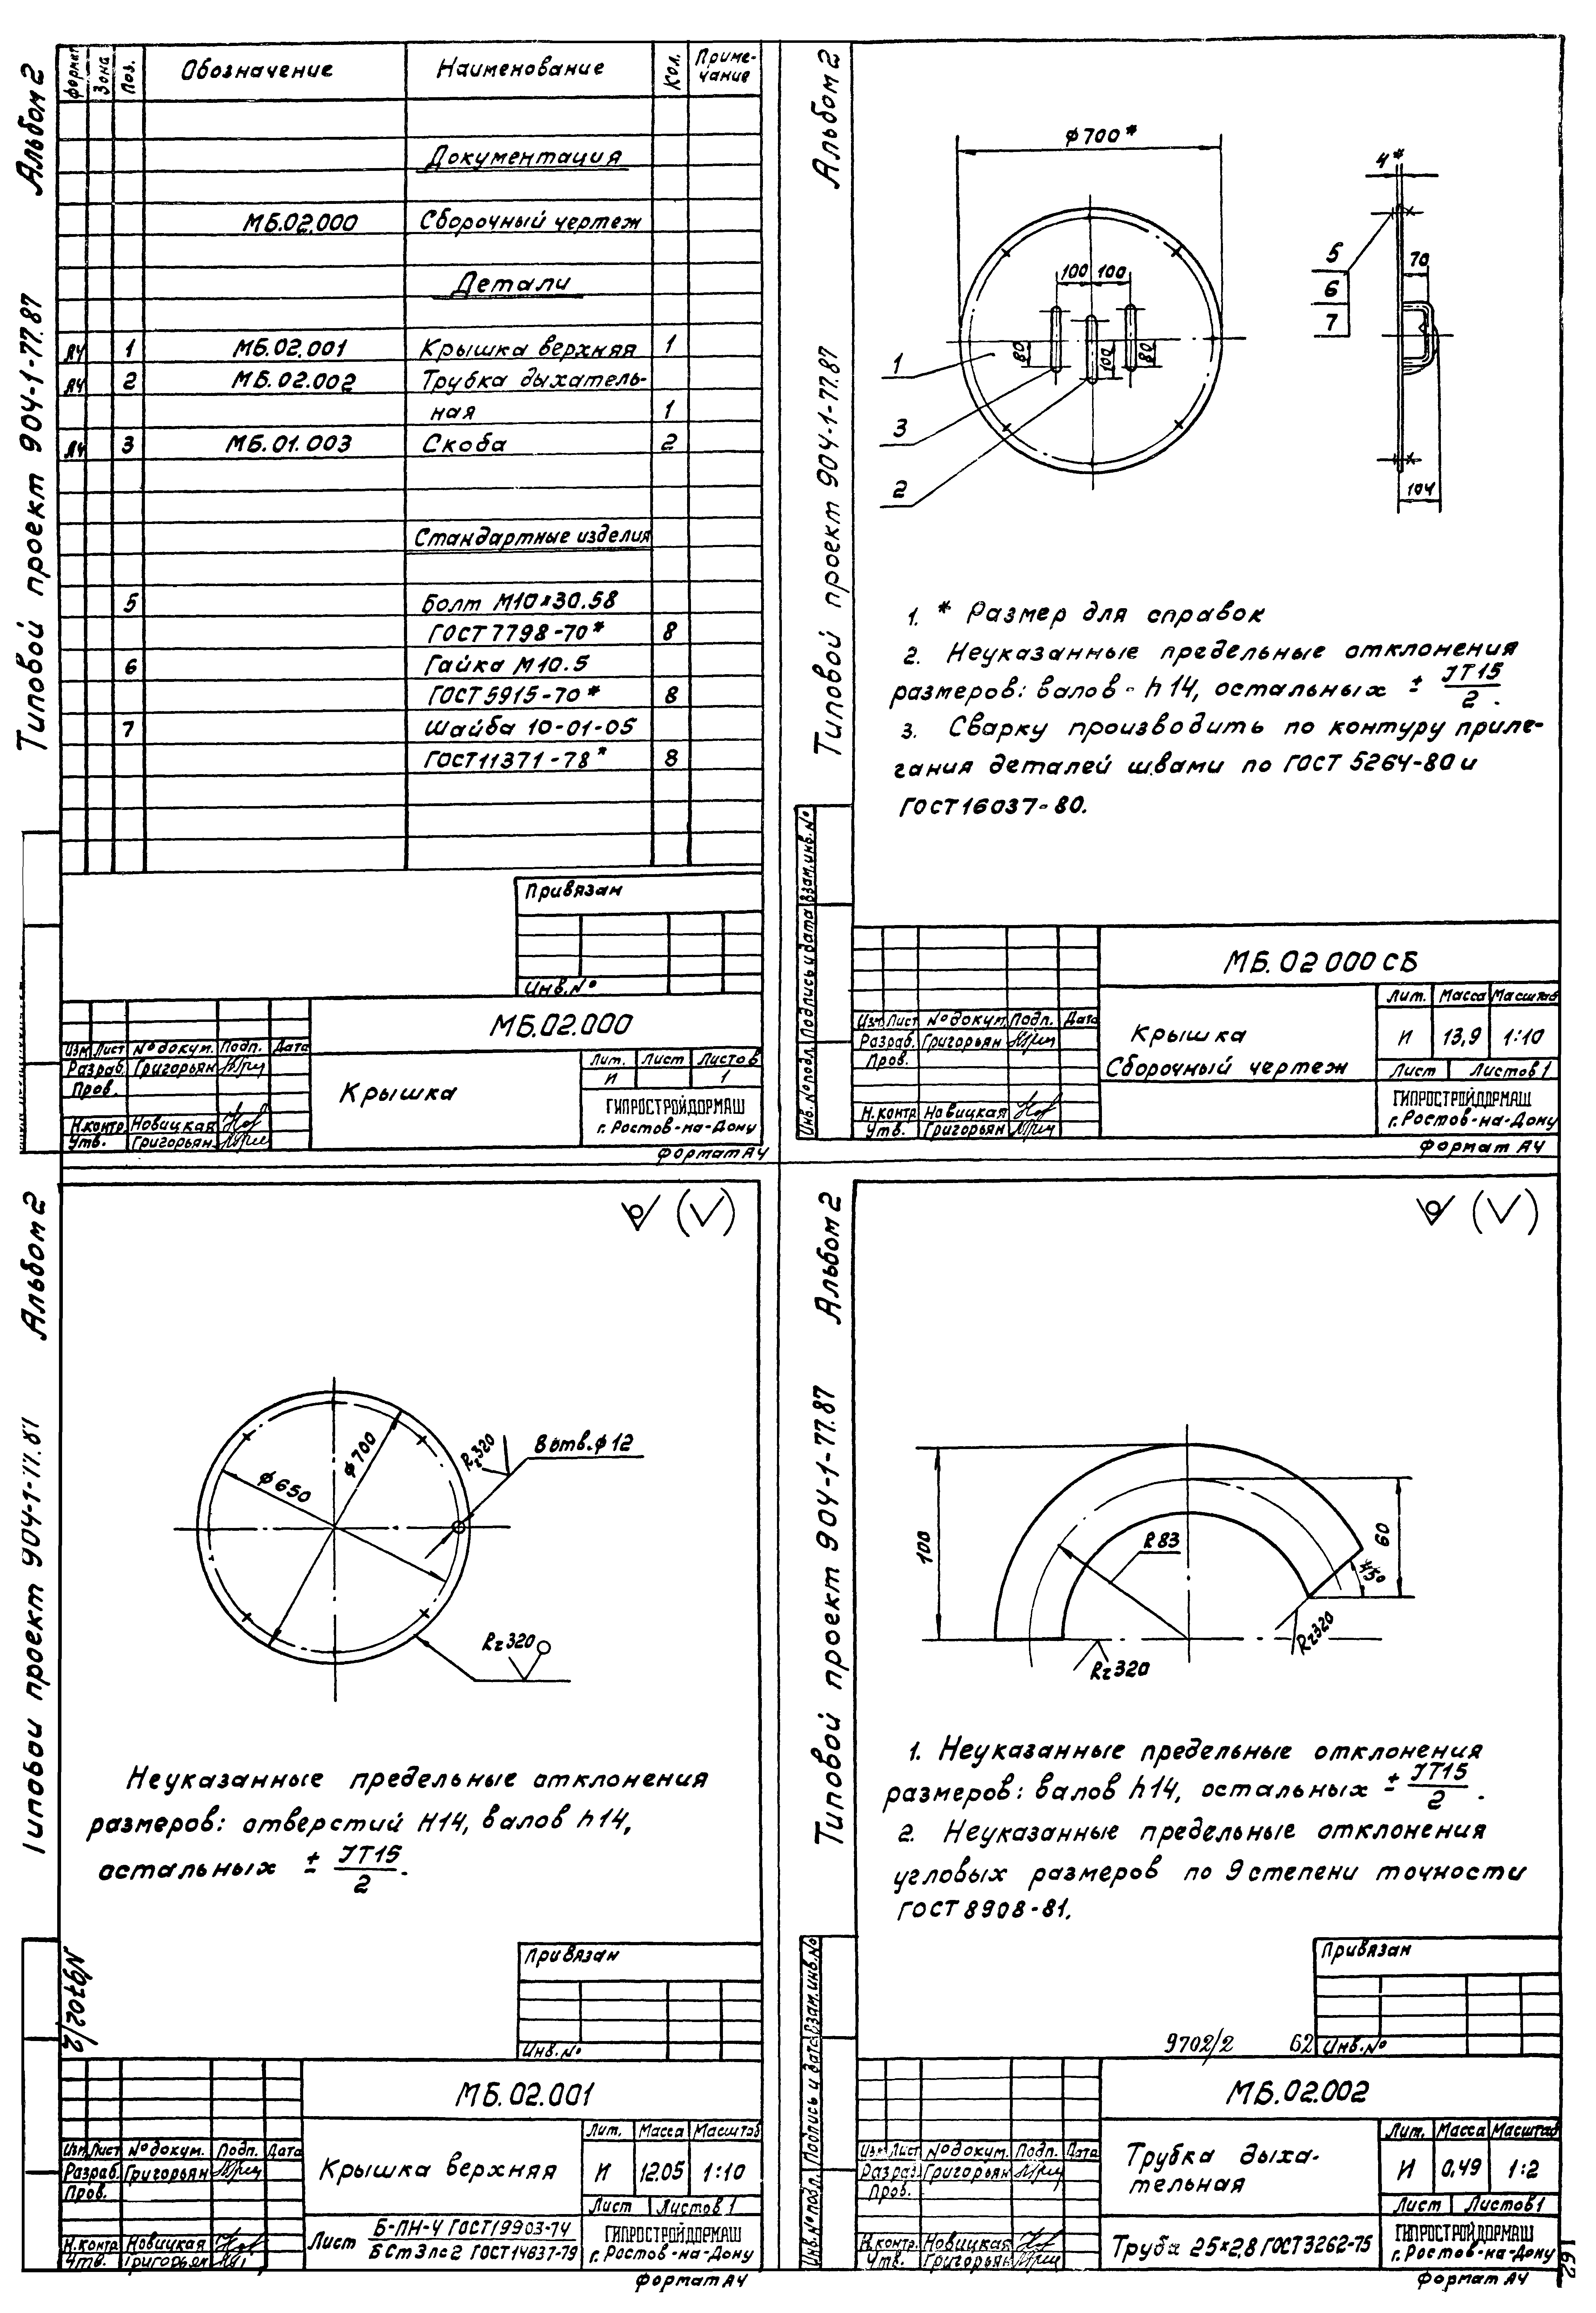 Типовой проект 904-1-77.87 Альбом 2
Формат Зона Поз. Обозначение Наименование Кол. Приме-
чание
Документация
МБ.02.000 Сборочный чертеж
Детали
А4 1 МБ.02.001 Крышка верхняя 1
А4 2 МБ.02.002 Трубка дыхатель-
ная 1
А4 3 МБ.01.003 Скоба 2
Стандартные изделия
5 Болт М10х30.58
ГОСТ 7798-70* 8
6 Гайка М10.5
ГОСТ 5915-70* 8
7 Шайба 10-01-05
ГОСТ 11371-78* 8
Привязан
Инв.№
МБ.02.000
Изм Лист № докум. Подп. Дата
Разраб. Григорьян
Пров.
Н.контр Новицкая
Утв. Григорьян
Крышка
Лит. Лист Листов
И 1
ГИПРОСТРОЙДОРМАШ
г. Ростов-на-Дону
Формат А4
Типовой проект 904-1-77.87 Альбом 2
ф700*
4*
100 100
80 100 80
1
3
2
5
6
7
70
104
1. * Размер для справок
2. Неуказанные предельные отклонения
размеров: валов - h14, остальных ± IT15/2.
3. Сварку производить по контуру приле-
гания деталей швами по ГОСТ 5264-80 и
ГОСТ 16037-80.
Инв. № подл. Подпись и дата Взам.инв.№
МБ.02 000 СБ
Изм Лист № докум. Подп. Дата
Разраб. Григорьян
Пров.
Н.контр. Новицкая
Утв. Григорьян
Крышка
Сборочный чертеж
Лит. Масса Масштаб
И 13,9 1:10
Лист Листов 1
ГИПРОСТРОЙДОРМАШ
г. Ростов-на-Дону
Формат А4
Типовой проект 904-1-77.87 Альбом 2
(√)
ф700
ф650
Rz320
8 отв. ф12
Rz320
Неуказанные предельные отклонения
размеров: отверстий Н14, валов h14,
остальных ± IT15/2.
N9702/2
Привязан
Инв.№
МБ.02.001
Изм Лист № докум. Подп. Дата
Разраб. Григорьян
Пров.
Н.контр. Новицкая
Утв. Григорьян
Крышка верхняя
Лит. Масса Масштаб
И 12.05 1:10
Лист Листов 1
Лист Б-ПН-4 ГОСТ 19903-74
БСт3пс2 ГОСТ 14637-79
ГИПРОСТРОЙДОРМАШ
г. Ростов-на-Дону
Формат А4
Типовой проект 904-1-77.87 Альбом 2
(√)
100
R83
60
45°
Rz320
Rz320
1. Неуказанные предельные отклонения
размеров: валов h14, остальных ± IT15/2.
2. Неуказанные предельные отклонения
угловых размеров по 9 степени точности
ГОСТ 8908-81.
Инв.№ подл. Подпись и дата Взам.инв.№
Привязан
9702/2 62 Инв.№
МБ.02.002
Изм Лист № докум. Подп. Дата
Разраб. Григорьян
Пров.
Н.контр. Новицкая
Утв. Григорьян
Трубка дыха-
тельная
Лит. Масса Масштаб
И 0,49 1:2
Лист Листов 1
Труба 25х2,8 ГОСТ 3262-75
ГИПРОСТРОЙДОРМАШ
г. Ростов-на-Дону
Формат А4
162